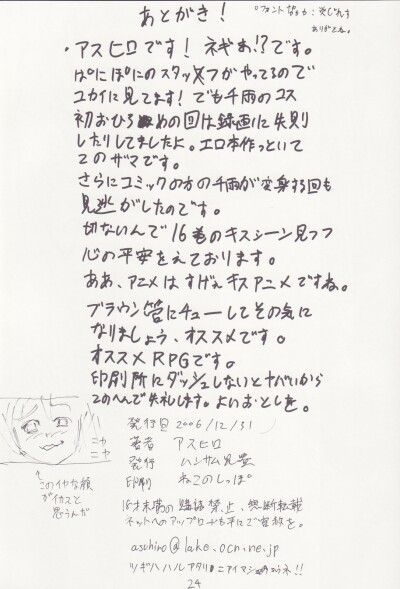 あとがき！
・アスヒロです！ネギぁ!?です。
ぱにぽにのスタッフがやってるので
ユカイに見てます！でも千雨のコス
初おひろめの回は録画に失敗
したりしてましたよ。エロ本作っといて
このザマです。
さらにコミックの方の千雨が変身する回も
見逃がしたのです。
切ないんで16巻のキスシーン見つつ
心の平安をえております。
ああ、アニメはすげえキスアニメですね。
ブラウン管にチューしてその気に
なりましょう、オススメです。
オススメRPGです。
印刷所にダッシュしないとヤバいから
このへんで失礼します。よいおとしを。
ニヤ
ニヤ
↑
このイヤな顔
がイカスと
思うんだ
発行日 2006/12/31
著者 アスヒロ
発行 ハンサム兄貴
印刷 ねこのしっぽ
18才未満の購読禁止、無断転載
ネットへのアップロードも平にご容赦を。
asuhiro@lake.ocn.ne.jp
ツギハハルアタリニアイマショウネ!!
24